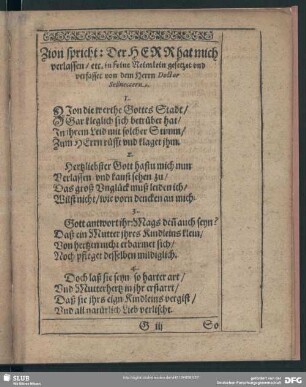 Zion spricht: Der HERR hat mich
verlassen / etc. in feine Reimlein gesetzet vnd
verfasset von dem Herrn Doctor
1.
ZIon die werthe Gottes Stadt /
Gar kleglich sich betrübet hat /
In ihrem Leid mit solcher Stimm /
Zum HErrn rüfft vnd klaget jhm.
2.
Hertzliebster Gott hastu mich nun
Verlassen vnd kanst sehen zu /
Das groß Vnglück muß leiden ich /
Wilst nicht / wie vorn dencken an mich.
3.
Gott antwort ihr: Mags deñ auch seyn?
Daß ein Mutter jhres Kindleins klein /
Von hertzen nicht erbarmet sich /
Noch pfleget desselben mildiglich.
4.
Doch laß sie seyn so harter art /
Vnd Mutterhertz in jhr erstarrt /
Daß sie jhrs eign Kindleins vergist /
Vnd all natürlich Lieb verlischt.
G iij So
SLUB
Wir führen Wissen.
gefördert von der
Deutschen Forschungsgemeinschaft